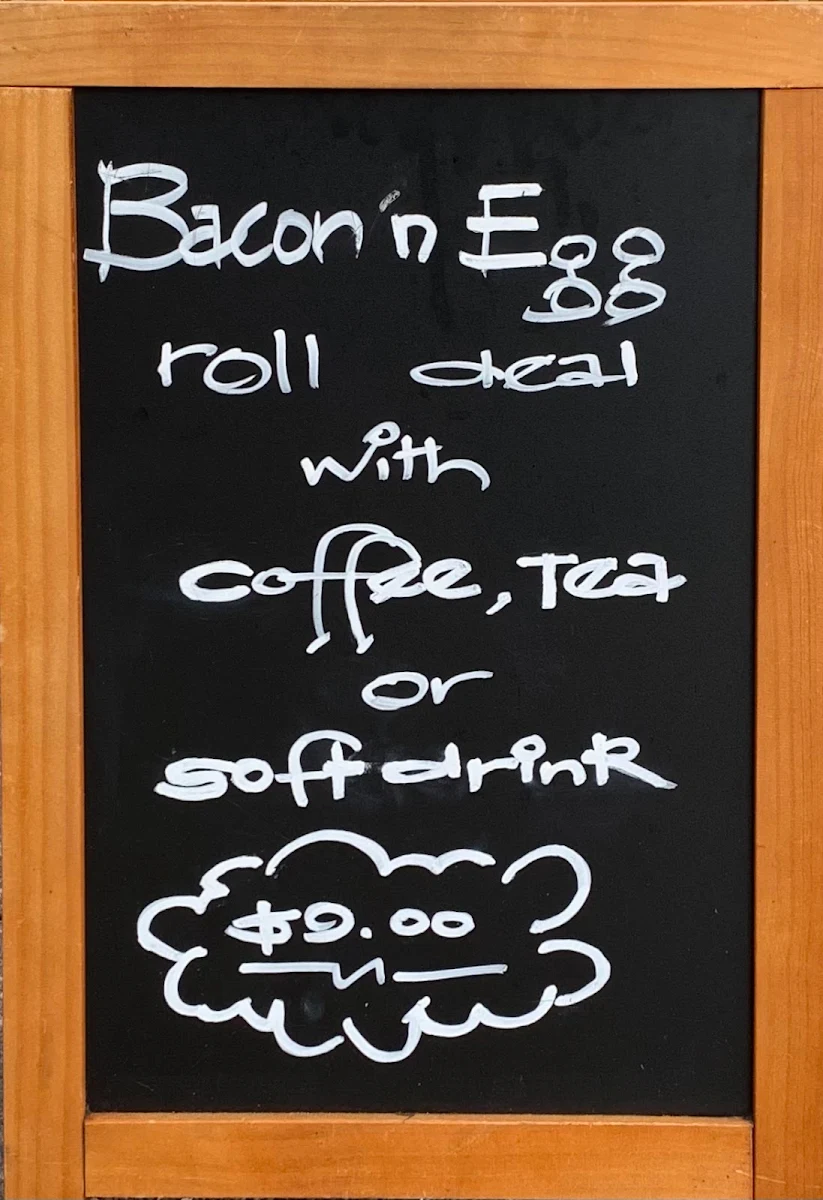 Bacon 'n Egg
roll deal
with
coffee, Tea
or
soft drink
$9.00